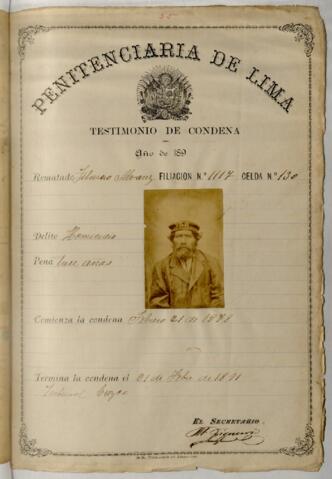 PENITENCIARIA DE LIMA
TESTIMONIO DE CONDENA
Año de 189
Rematado FILIACION N.º 1117 CELDA N.º 130
Delito Homicidio
Pena años
Comienza la condena Febrero 21 de 18
Termina la condena el 21 de Feb. de 18
Tribunal Cuzco
EL SECRETARIO.